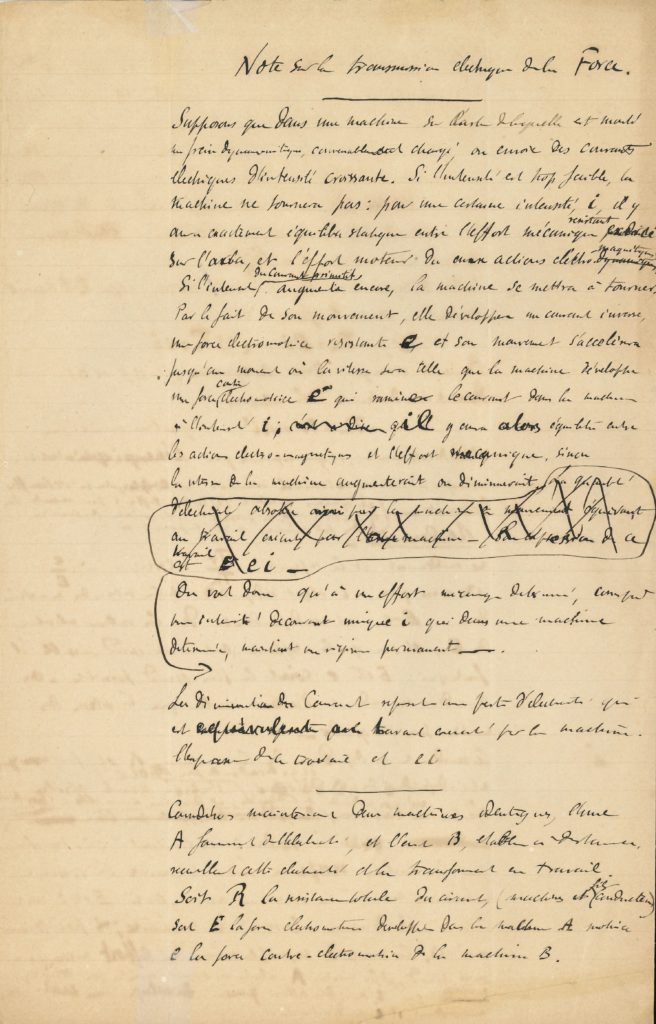 Note sur la transmission électrique de la Force.
Supposons que dans une machine sur l'arbre de laquelle est monté
un frein dynamométrique, convenablement chargé on envoie des courants
électriques d'intensité croissante. Si l'intensité est trop faible, la
machine ne tournera pas : pour une certaine intensité, i, il y
aura exactement équilibre statique entre l'effort mécanique résistant
sur l'arbre, et l'effort moteur du aux actions électromagnétiques,
Si l'intensité du courant primitif augmente encore, la machine se mettra à tourner,
Par le fait de son mouvement, elle développera un courant inverse,
une force électromotrice résistante e, et son mouvement s'accélérera
jusqu'au moment où la vitesse sera telle que la machine développe
une force contre électromotrice e qui ramène le courant dans la machine
à l'intensité i, c'est à dire qu'il y aura alors équilibre entre
les actions électro-magnétiques et l'effort mécanique, sinon
la vitesse de la machine augmenterait ou diminuerait, la quantité
d'électricité absorbée ainsi par la machine en mouvement équivaut
au travail exécuté par machine — L'expression de ce
travail est e i —
On voit donc qu'à un effort mécanique déterminé, correspond
une intensité de courant unique i qui dans une machine
déterminée, maintient un régime permanent —.
La diminution du Courant représente une perte d'électricité qui
est équivalente au travail exécuté par la machine.
l'expression de ce travail est e i
Considérons maintenant deux machines identiques, l'une
A fournissant l'électricité, et l'autre B, établie à distance,
recueillant cette électricité et la transformant en travail.
Soit R la résistance totale du circuit, (machines et fil conducteur)
soit E la force électromotrice développée dans la machine A motrice
e la force contre-électromotrice de la machine B.